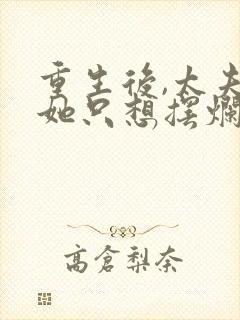 重生後,太夫
她只想擺爛
高倉梨奈